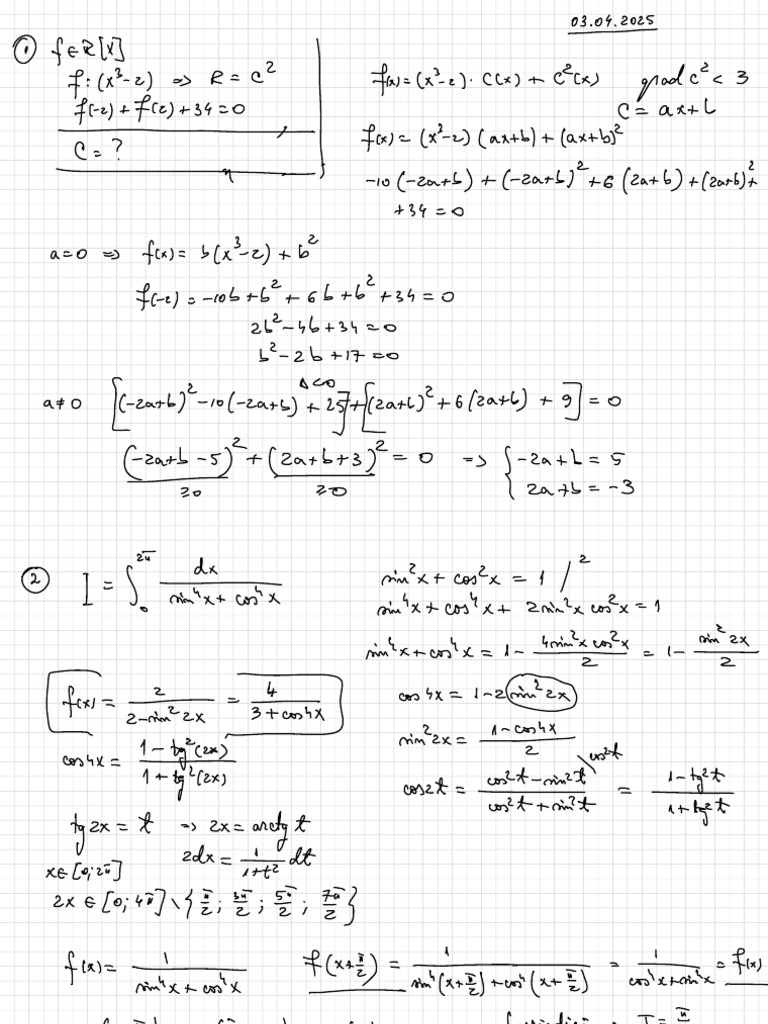 03.04.2025
① f∈R[X]
f:(x³-2) ⇒ R = C²
f(-2)+f(2)+34=0
C = ?
f(x)=(x³-2)·C(x)+C²(x) grad C² < 3
C = ax+b
f(x)=(x³-2)(ax+b)+(ax+b)²
-10(-2a+b)+(-2a+b)²+6(2a+b)+(2a+b)²+
+34=0
a=0 ⇒ f(x)= b(x³-2)+b²
f(-2)=-10b+b²+6b+b²+34=0
2b²-4b+34=0
b²-2b+17=0
Δ<0
a≠0 [(-2a+b)²-10(-2a+b)+25]+[(2a+b)²+6(2a+b)+9]=0
(-2a+b-5)²+(2a+b+3)²=0 ⇒ { -2a+b=5
≥0 ≥0 2a+b=-3
② I = ∫₀^2π dx/(sin⁴x+cos⁴x)
sin²x+cos²x=1 /²
sin⁴x+cos⁴x+2sin²xcos²x=1
sin⁴x+cos⁴x=1-4sin²xcos²x/2=1-sin²2x/2
f(x)=2/(2-sin²2x)=4/(3+cos4x)
cos4x=1-2sin²2x
cos4x=(1-tg²(2x))/(1+tg²(2x))
sin²2x=(1-cos4x)/2
cos2t=(cos²t-sin²t)/(cos²t+sin²t)=(1-tg²t)/(1+tg²t)
cos²t
tg2x=t ⇒ 2x=arctgt
x∈[0;2π] 2dx=1/(1+t²)dt
2x∈[0;4π]\{π/2;3π/2;5π/2;7π/2}
f(x)=1/(sin⁴x+cos⁴x) f(x+π/2)=1/(sin⁴(x+π/2)+cos⁴(x+π/2))=1/(cos⁴x+sin⁴x)=f(x)